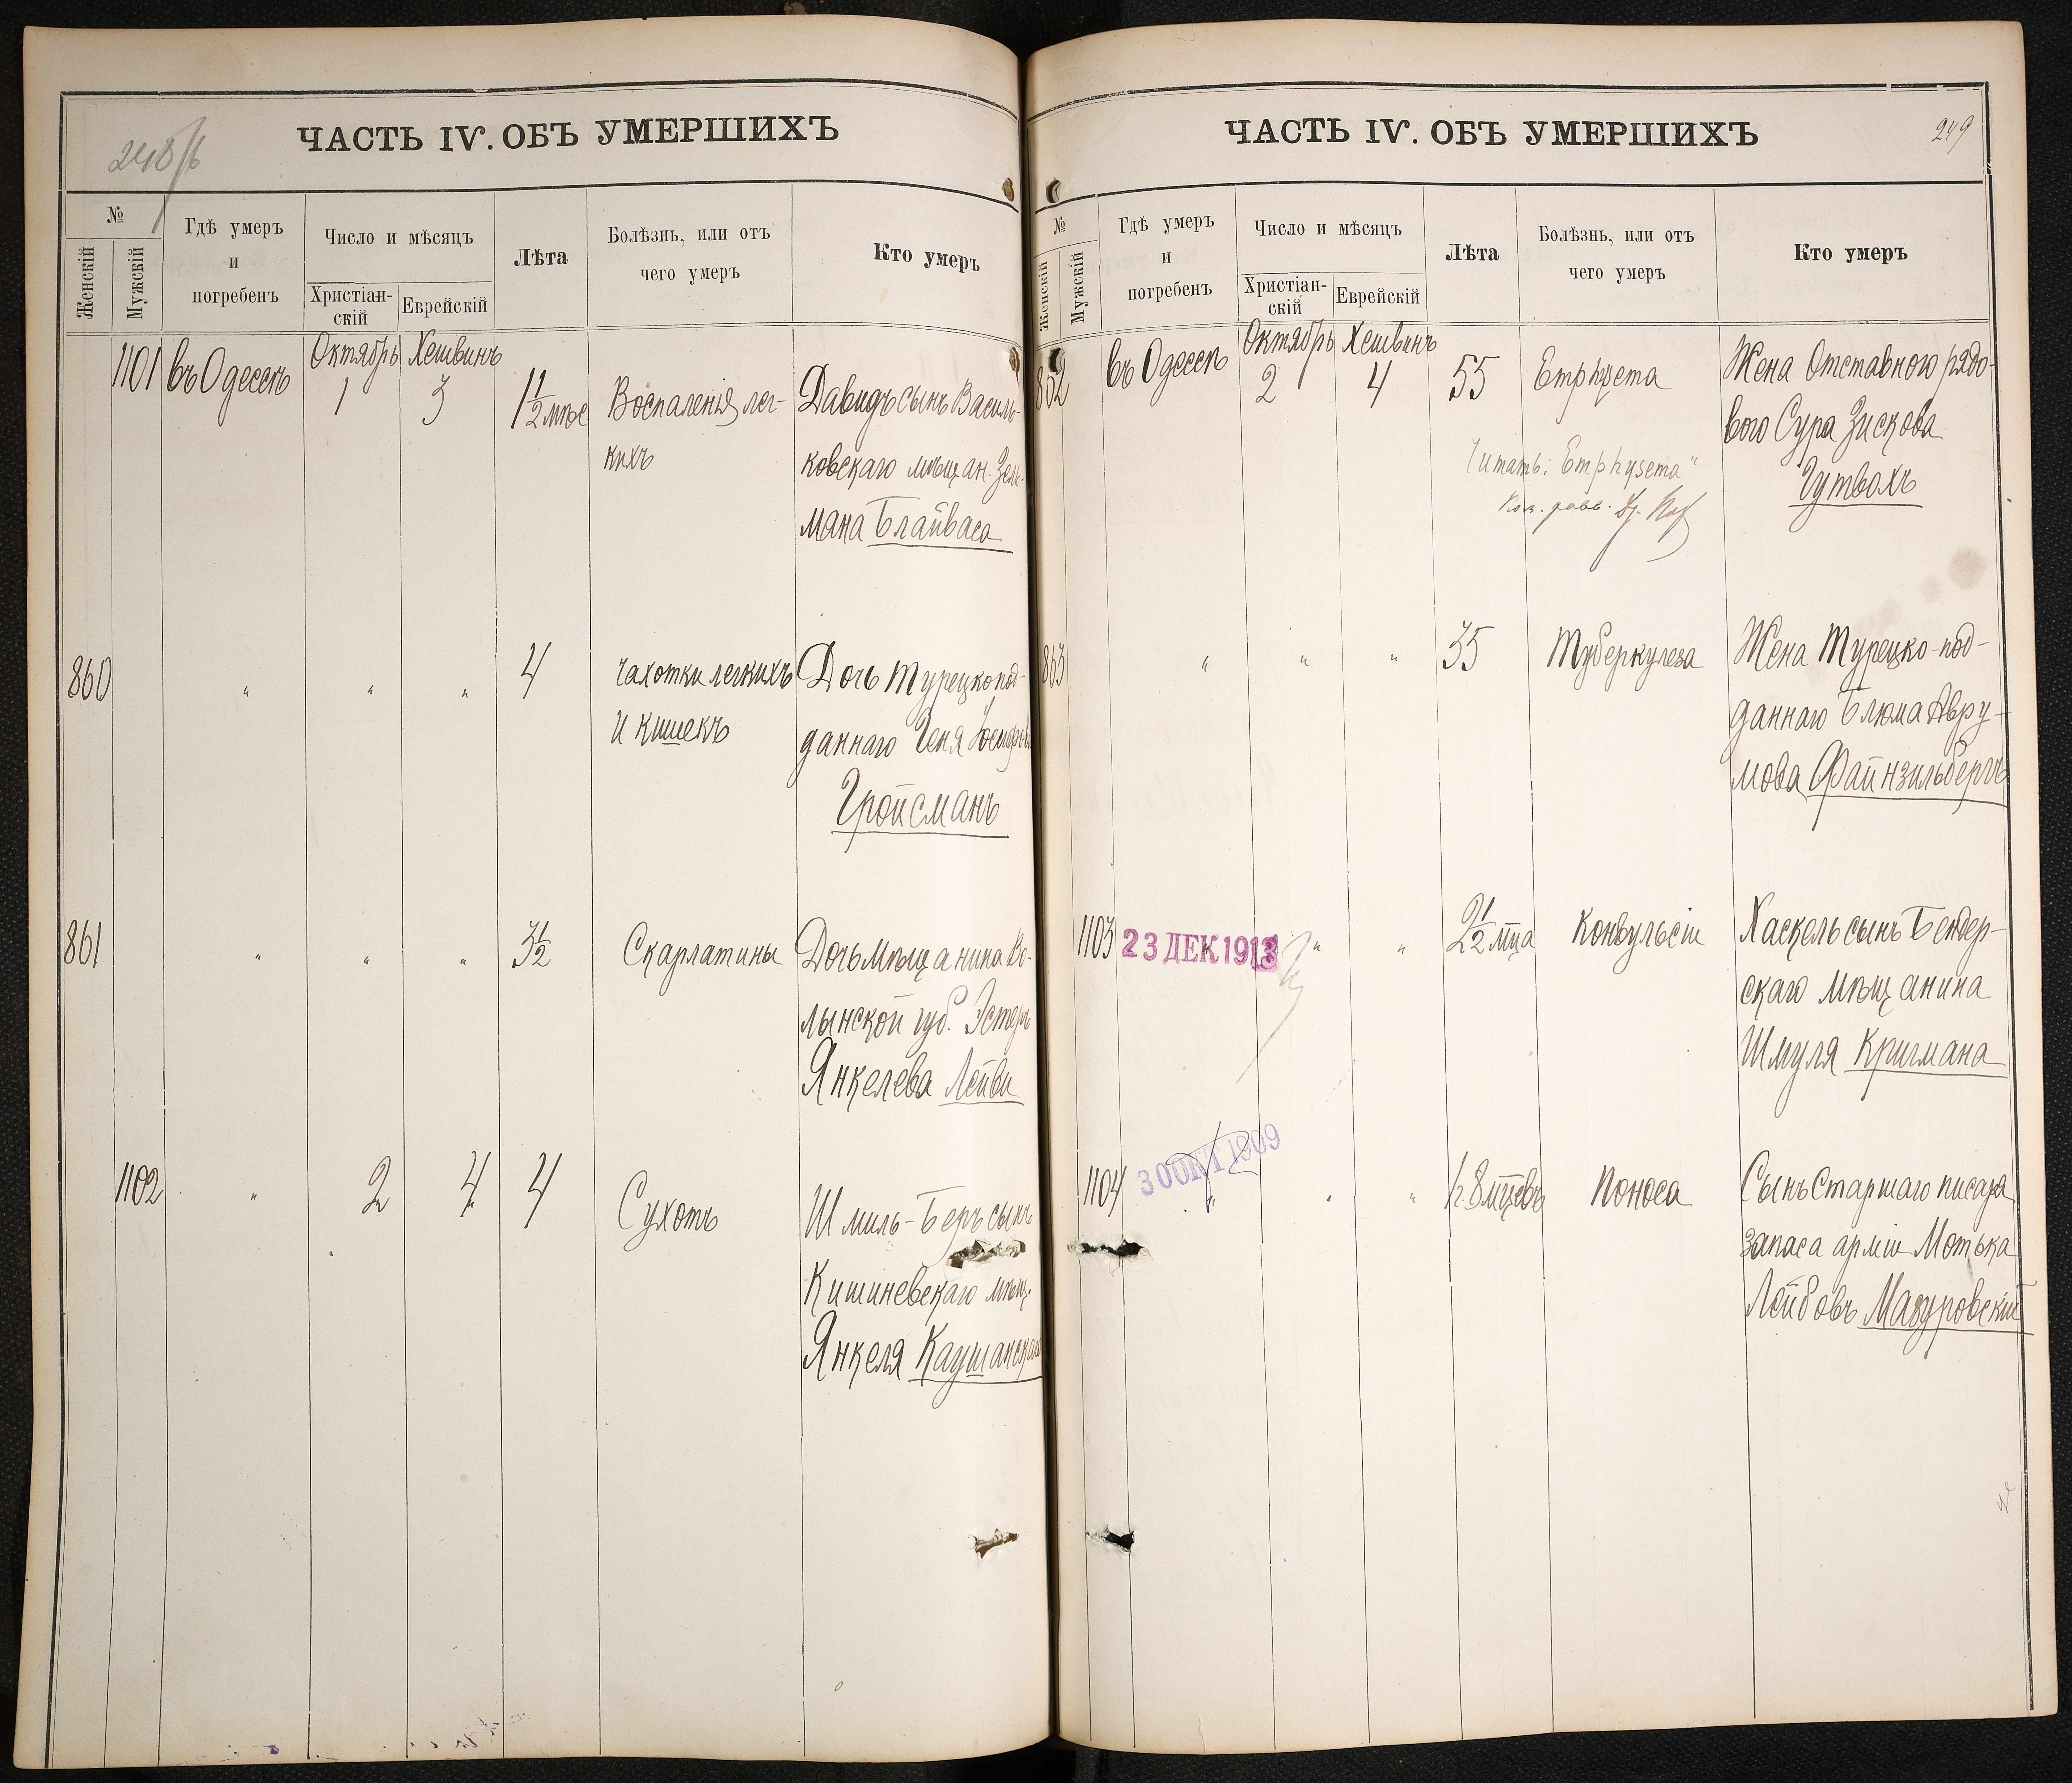 248/б
ЧАСТЬ IV. ОБЪ УМЕРШИХЪ
№
Женскій
Мужскій
Гдѣ умеръ
и
погребенъ
Число и мѣсяцъ
Христіан-
скій
Еврейскій
Лѣта
Болѣзнь, или отъ
чего умеръ
Кто умеръ
Октябрь Хешвинъ
1101 въ Одессѣ 1 3 1 1/2 мѣс Воспаленія лег- Давидъ сынъ Василь-
кихъ ковскаго мѣщан. Зель-
мана Блайваса
860 " " " 4 Чахотки легкихъ Дочь Турецкопод-
и кишекъ даннаго Геня
Гройсманъ
861 " " " 3 1/2 Скарлатины Дочь Мѣщанина Во-
лынской губ. Эстеръ
Янкелева Лейви
1102 " 2 4 4 Сухотъ Шмиль-Беръ сынъ
Кишиневскаго мѣщ.
Янкеля Каушанскаго
249
ЧАСТЬ IV. ОБЪ УМЕРШИХЪ
№
Женскій
Мужскій
Гдѣ умеръ
и
погребенъ
Число и мѣсяцъ
Христіан-
скій
Еврейскій
Лѣта
Болѣзнь, или отъ
чего умеръ
Кто умеръ
Октябрь Хешвинъ
862 въ Одессѣ 2 4 55 Emphyzema Жена Отставного рядо-
вого Сура Зискова
Читать: Emphysema"
Гутволъ
863 " " " 35 Туберкулеза Жена Турецко-под-
даннаго Блюма Авру-
мова Файнзильбергъ
1103 23 ДЕК 1913 " " 2 1/2 мца Конвульсіи Хаскель сынъ Бендер-
скаго мѣщанина
Шмуля Кригмана
30 ОКТ 1909
1104 " " " 1 г. 8 мцевъ Поноса Сынъ Старшаго писаря
запаса арміи Мотька
Лейбовъ Мазуровскій